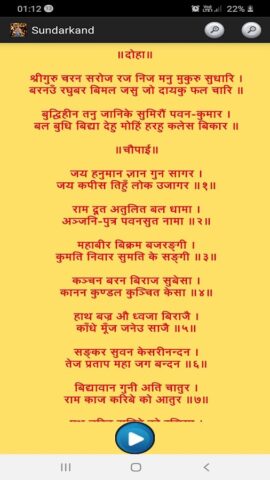 01:12
22%
Sundarkand
॥दोहा॥
श्रीगुरु चरन सरोज रज निज मनु मुकुरु सुधारि ।
बरनउँ रघुबर बिमल जसु जो दायकु फल चारि ॥
बुद्धिहीन तनु जानिके सुमिरौं पवन-कुमार ।
बल बुधि बिद्या देहु मोहिं हरहु कलेस बिकार ॥
॥चौपाई॥
जय हनुमान ज्ञान गुन सागर ।
जय कपीस तिहुँ लोक उजागर ॥१॥
राम दूत अतुलित बल धामा ।
अञ्जनि-पुत्र पवनसुत नामा ॥२॥
महाबीर बिक्रम बजरङ्गी ।
कुमति निवार सुमति के सङ्गी ॥३॥
कञ्चन बरन बिराज सुबेसा ।
कानन कुण्डल कुञ्चित केसा ॥४॥
हाथ बज्र औ ध्वजा बिराजै ।
काँधे मूँज जनेउ साजै ॥५॥
सङ्कर सुवन केसरीनन्दन ।
तेज प्रताप महा जग बन्दन ॥६॥
बिद्यावान गुनी अति चातुर ।
राम काज करिबे को आतुर ॥७॥